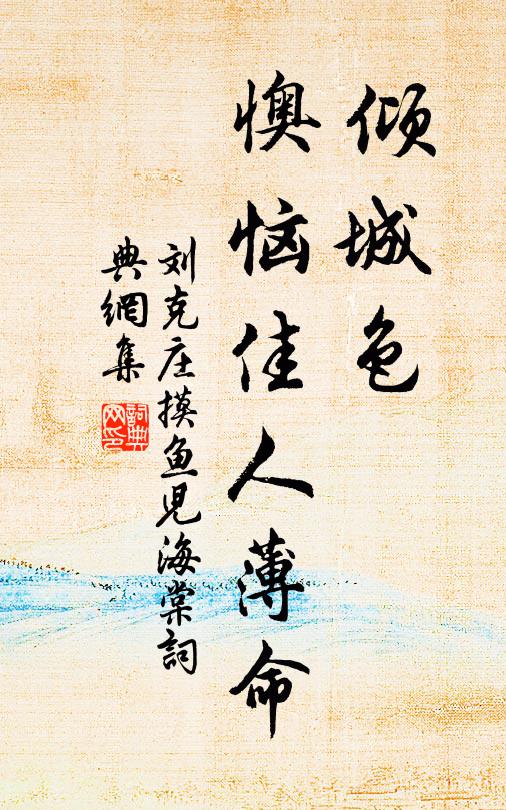 倾城色
懊恼佳人薄命
刘克庄摸鱼児海棠詞
典網集
詞典
网印